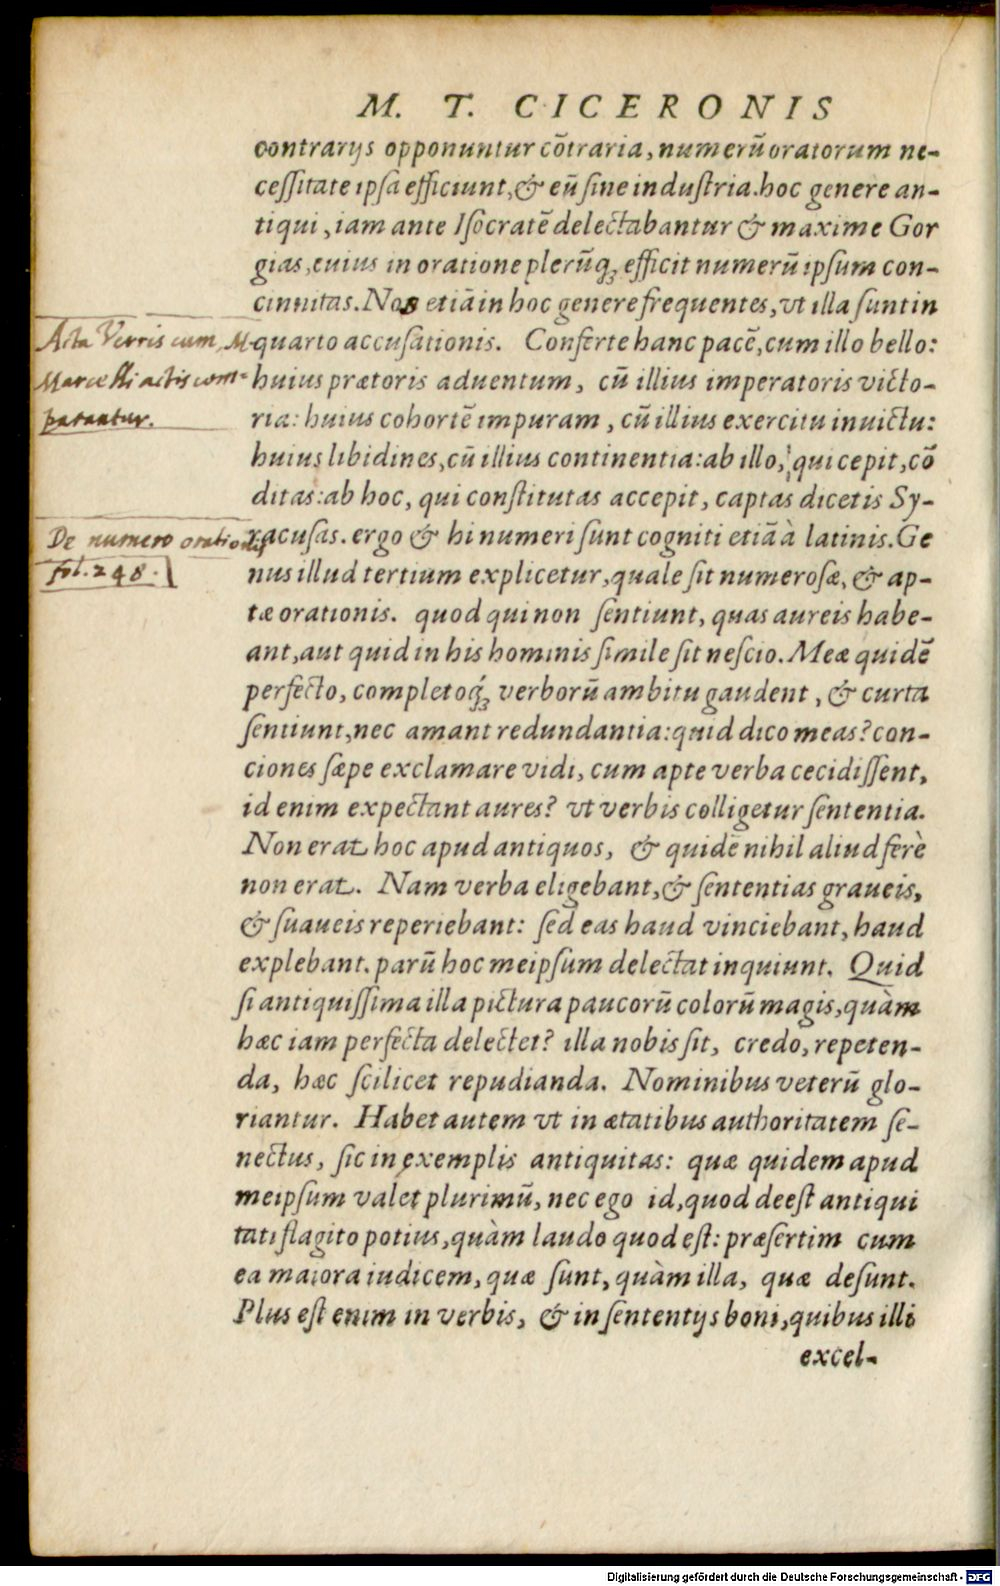 M. T. CICERONIS
contrarijs opponuntur cõtraria, numerũ oratorum ne-
cessitate ipsa efficiunt, & eũ sine industria. hoc genere an-
tiqui, iam ante Isocratẽ delectabantur & maxime Gor
gias, cuius in oratione plerũq; efficit numerũ ipsum con-
cinnitas. Nos etiã in hoc genere frequentes, vt illa sunt in
Acta Verris cum M.
quarto accusationis. Conferte hanc pacẽ, cum illo bello:
Marcelli actis com-
huius prætoris aduentum, cũ illius imperatoris victo-
parantur.
ria: huius cohortẽ impuram, cũ illius exercitu inuictu:
huius libidines, cũ illius continentia: ab illo, qui cepit, cõ
ditas: ab hoc, qui constitutas accepit, captas dicetis Sy-
De numero orationis
racusas. ergo & hi numeri sunt cogniti etiã à latinis. Ge
fol. 248.
nus illud tertium explicetur, quale sit numerosæ, & ap-
tæ orationis. quod qui non sentiunt, quas aureis habe-
ant, aut quid in his hominis simile sit nescio. Meæ quidẽ
perfecto, completoq́; verborũ ambitu gaudent, & curta
sentiunt, nec amant redundantia: quid dico meas? con-
ciones sæpe exclamare vidi, cum apte verba cecidissent,
id enim expectant aures? vt verbis colligetur sententia.
Non erat hoc apud antiquos, & quidẽ nihil aliud ferè
non erat. Nam verba eligebant, & sententias graueis,
& suaueis reperiebant: sed eas haud vinciebant, haud
explebant. parũ hoc meipsum delectat inquiunt. Quid
si antiquissima illa pictura paucorũ colorũ magis, quàm
hæc iam perfecta delectet? illa nobis sit, credo, repeten-
da, hæc scilicet repudianda. Nominibus veterũ glo-
riantur. Habet autem vt in ætatibus authoritatem se-
nectus, sic in exemplis antiquitas: quæ quidem apud
meipsum valet plurimũ, nec ego id, quod deest antiqui
tati flagito potius, quàm laudo quod est: præsertim cum
ea maiora iudicem, quæ sunt, quàm illa, quæ desunt.
Plus est enim in verbis, & in sententijs boni, quibus illi
excel-
Digitalisierung gefördert durch die Deutsche Forschungsgemeinschaft - DFG